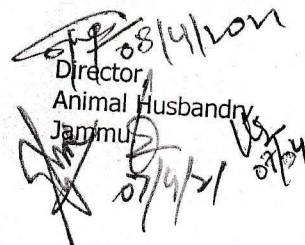 08/4/2021
Director,
Animal Husbandry
Jammu
07/4/21
07/04